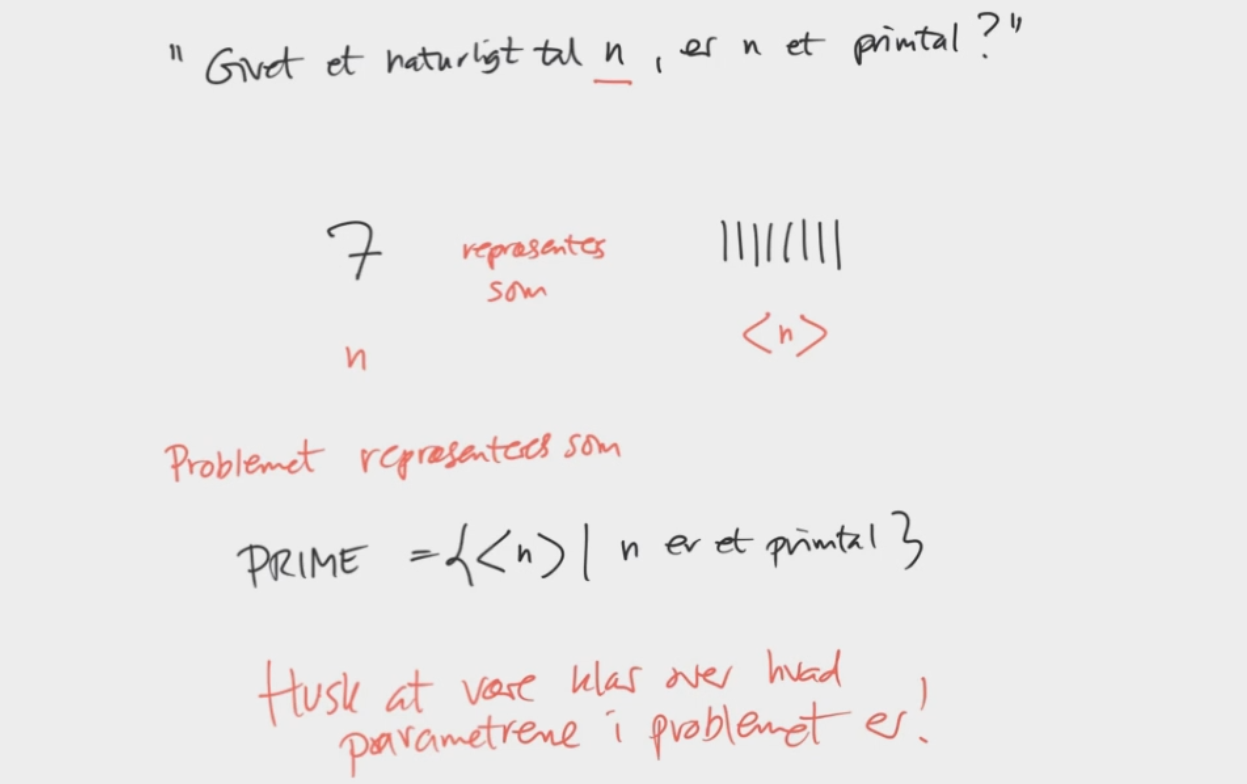 "Givet et naturligt tal n, er n et primtal?"
7 repræsentes ||||||||
som
<n>
n
Problemet repræsenteres som
PRIME = {<n> | n er et primtal}
Husk at være klar over hvad
parametrene i problemet er!